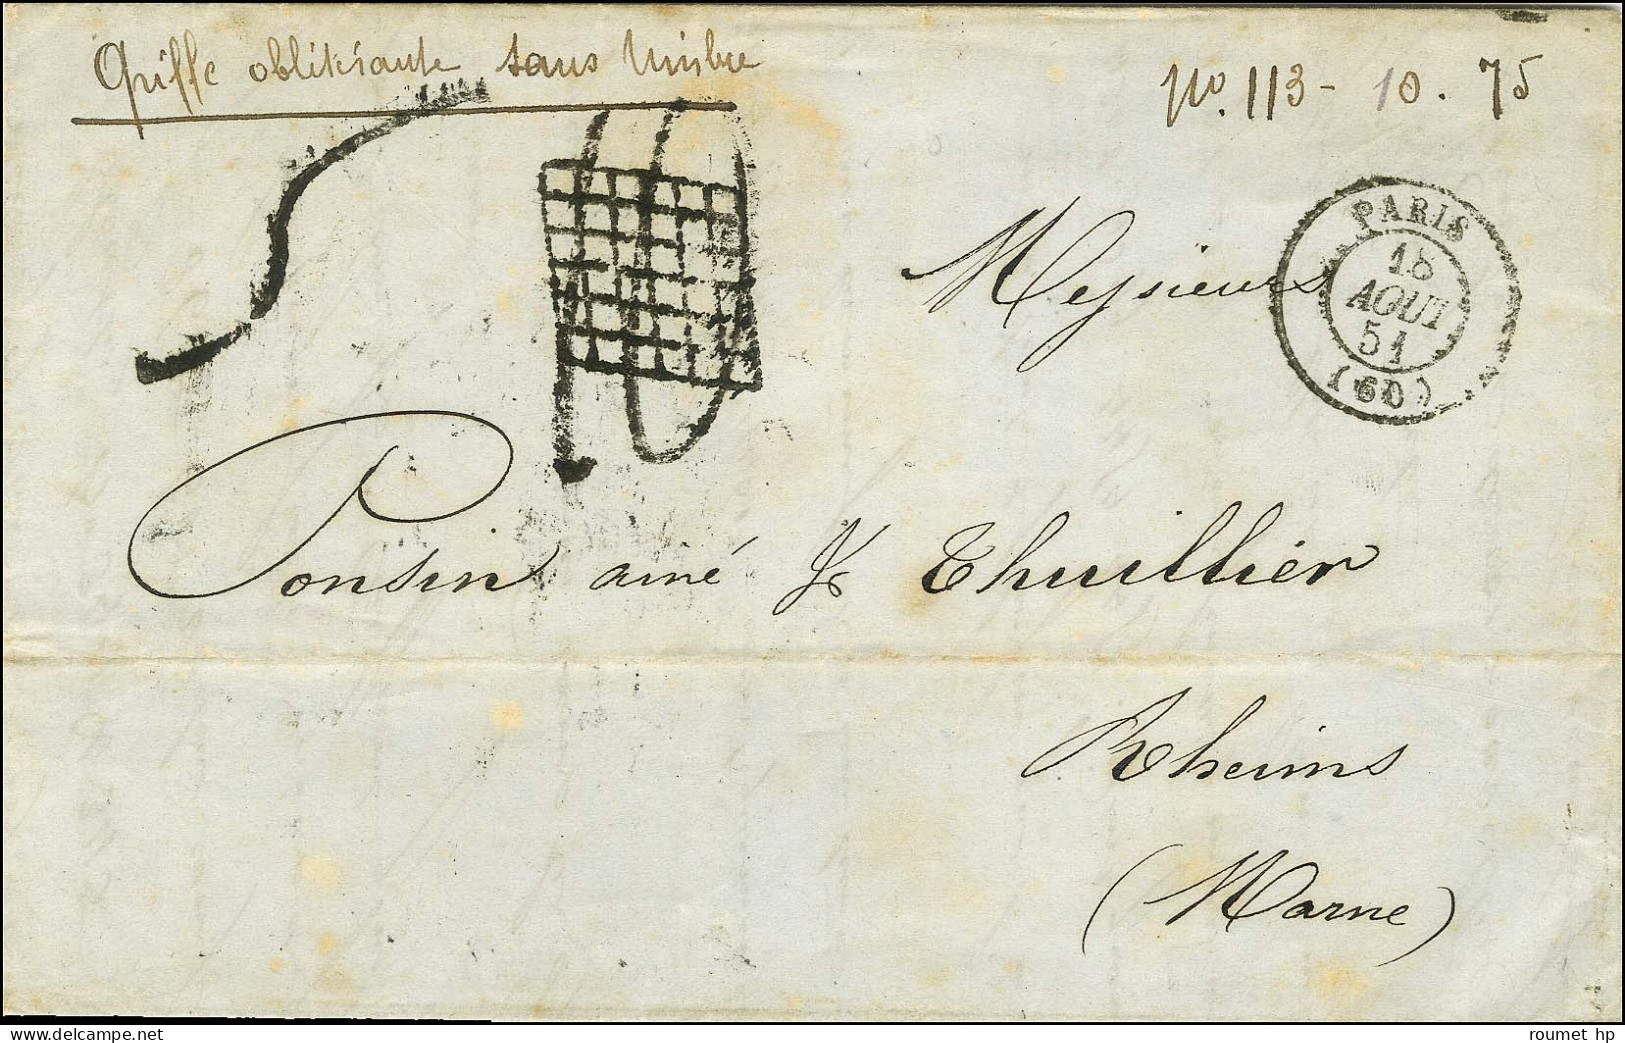 Griffe oblitérante sans timbre
No. 113 - 10. 75
PARIS
18
AOUT
51
(60)
Messieurs
Ponsin ainé & Thuillier
Rheims
(Marne)
delcampe.net
roumet hp